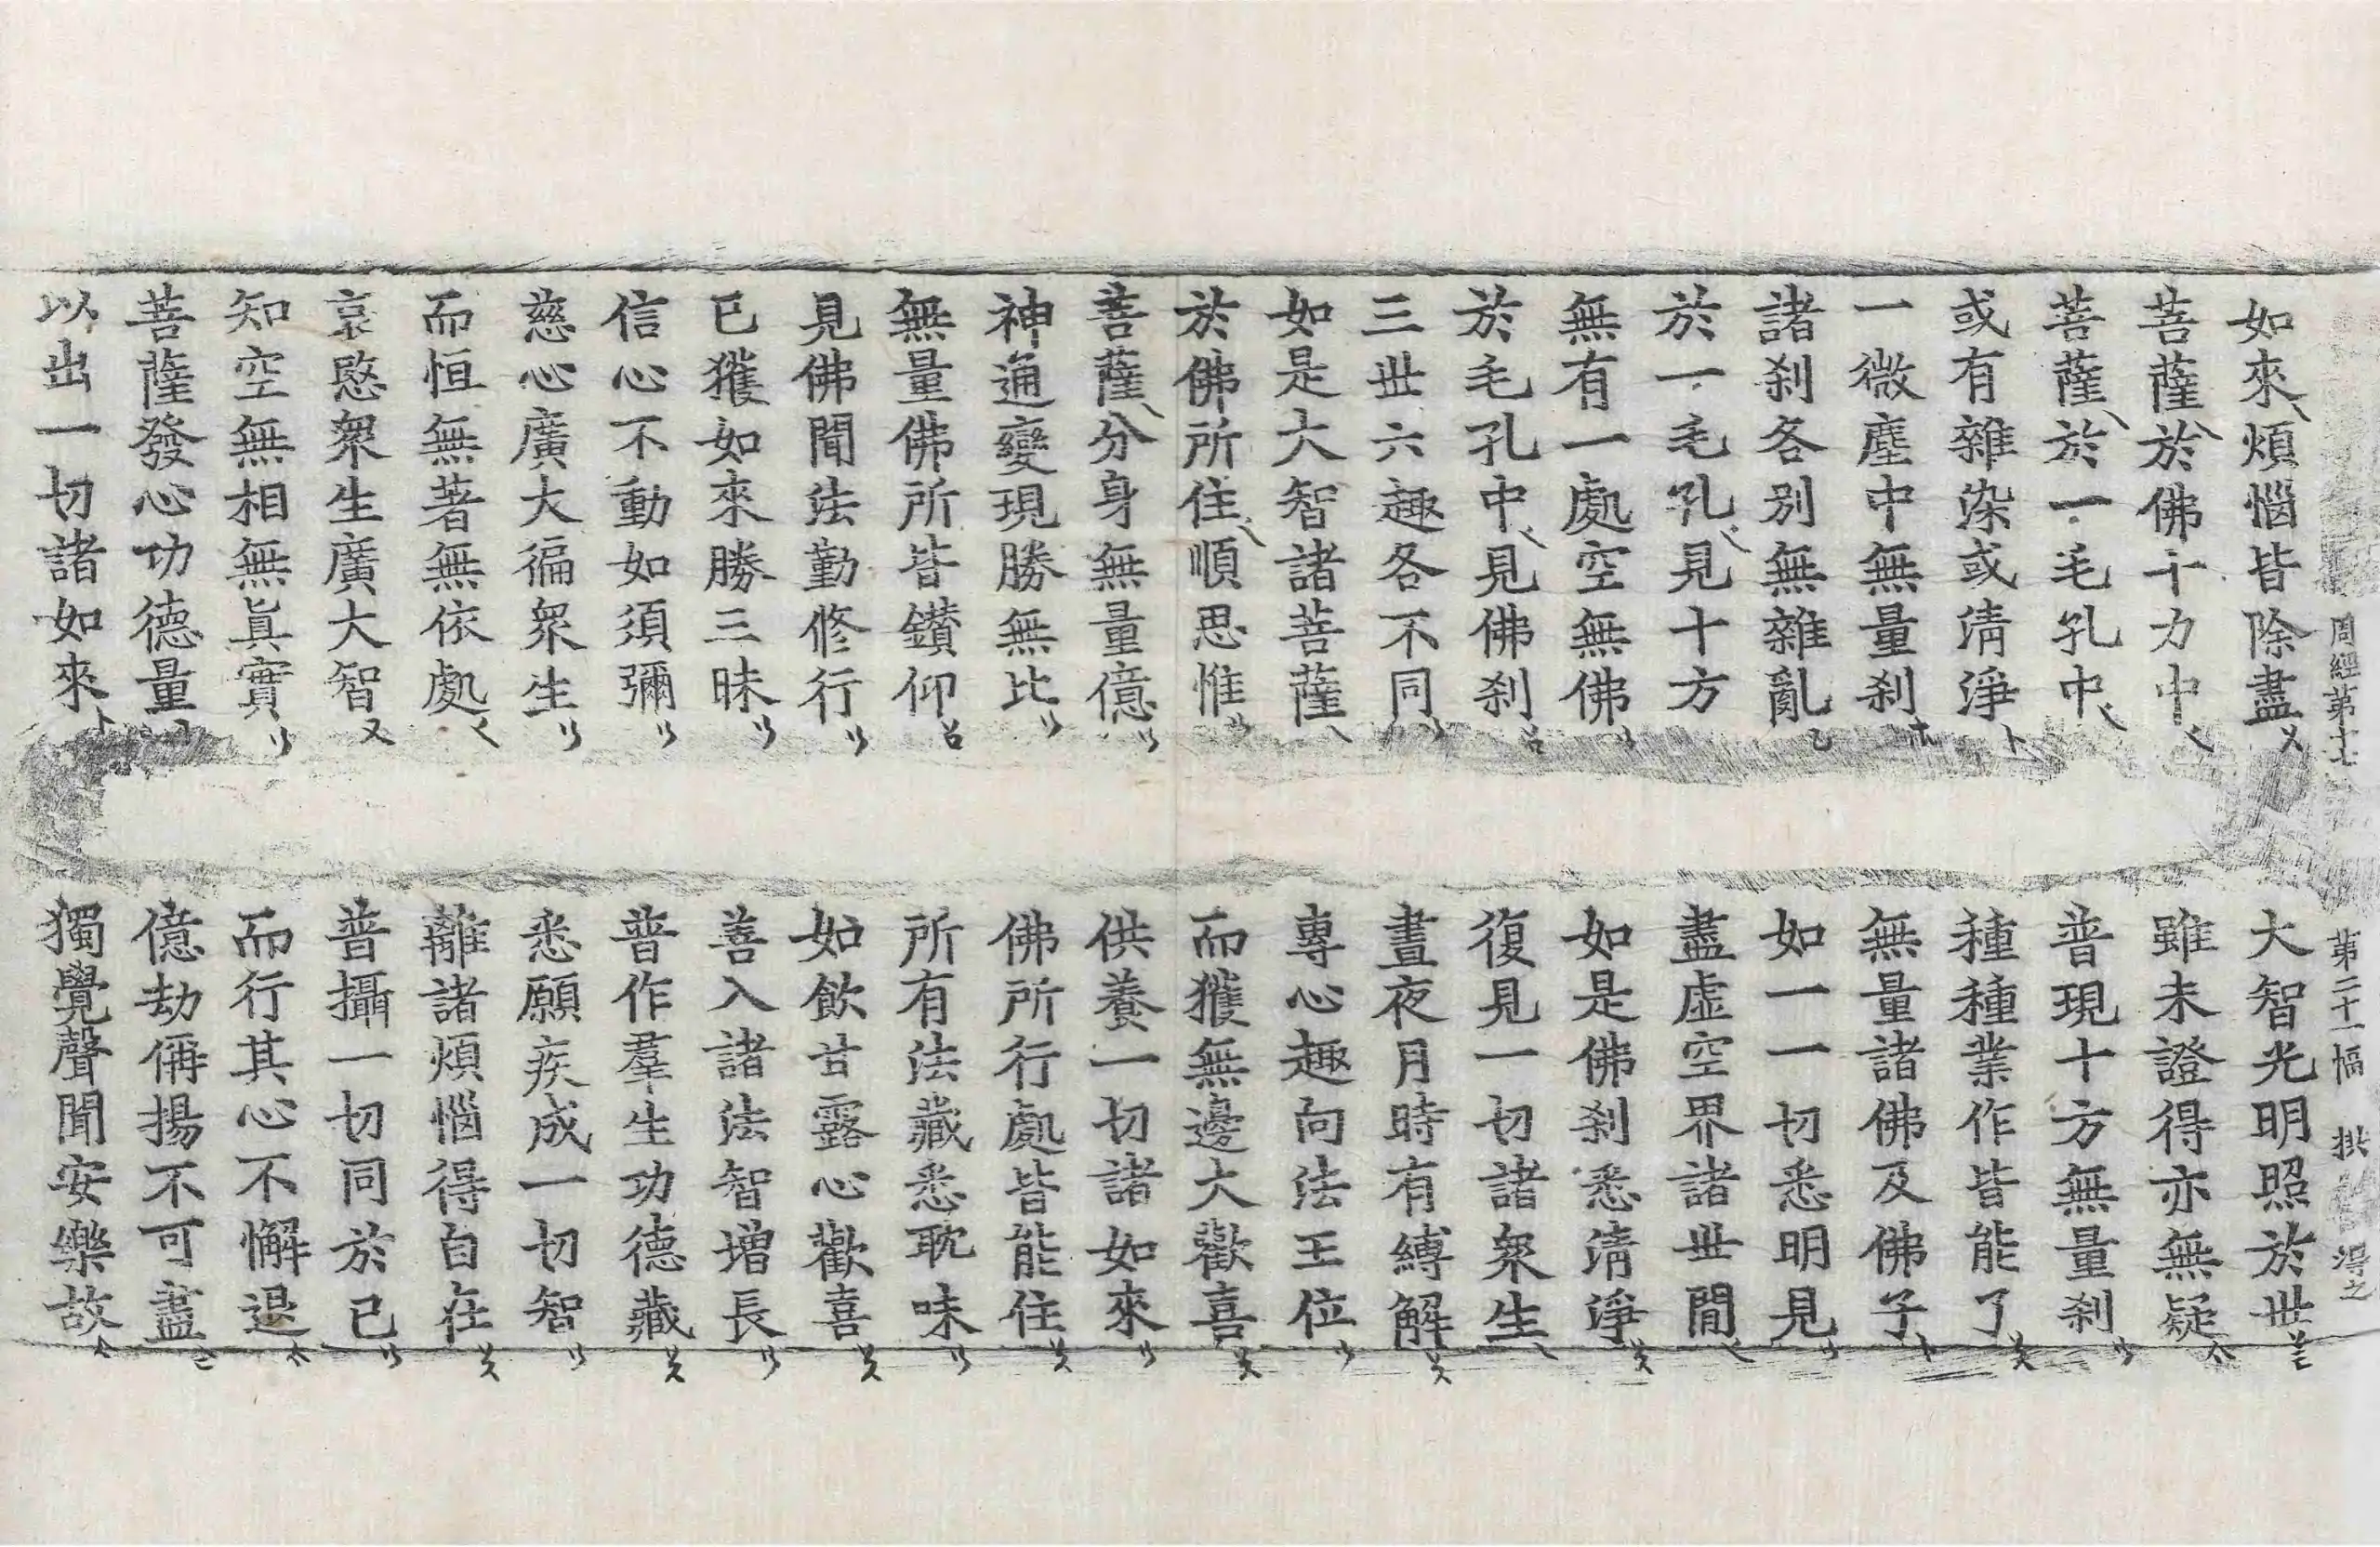 周經第十七　第二十一幅　拱　得之
如來煩惱皆除盡　大智光明照於世
菩薩於佛十力中　雖未證得亦無疑
菩薩於一毛孔中　普現十方無量刹
或有雜染或清淨　種種業作皆能了
一微塵中無量刹　無量諸佛及佛子
諸刹各別無雜亂　如一一切悉明見
於一毛孔見十方　盡虛空界諸世間
無有一處空無佛　如是佛刹悉清淨
於毛孔中見佛刹　復見一切諸衆生
三世六趣各不同　晝夜月時有縛解
如是大智諸菩薩　專心趣向法王位
於佛所住順思惟　而獲無邊大歡喜
菩薩分身無量億　供養一切諸如來
神通變現勝無比　佛所行處皆能住
無量佛所皆鑚仰　所有法藏悉耽味
見佛聞法勤修行　如飮甘露心歡喜
已獲如來勝三昧　善入諸法智增長
信心不動如須彌　普作羣生功德藏
慈心廣大徧衆生　悉願疾成一切智
而恒無著無依處　離諸煩惱得自在
哀愍衆生廣大智　普攝一切同於已
知空無相無眞實　而行其心不懈退
菩薩發心功德量　億劫偁揚不可盡
以出一切諸如來　獨覺聲聞安樂故